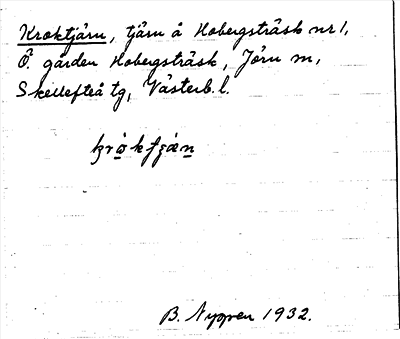 Kroktjärn, tjärn å Hobergsträsk nr 1,
Ö. gården Hobergsträsk, Jörn sn,
Skellefteå tg, Västerb. l.
B. Nygren 1932.